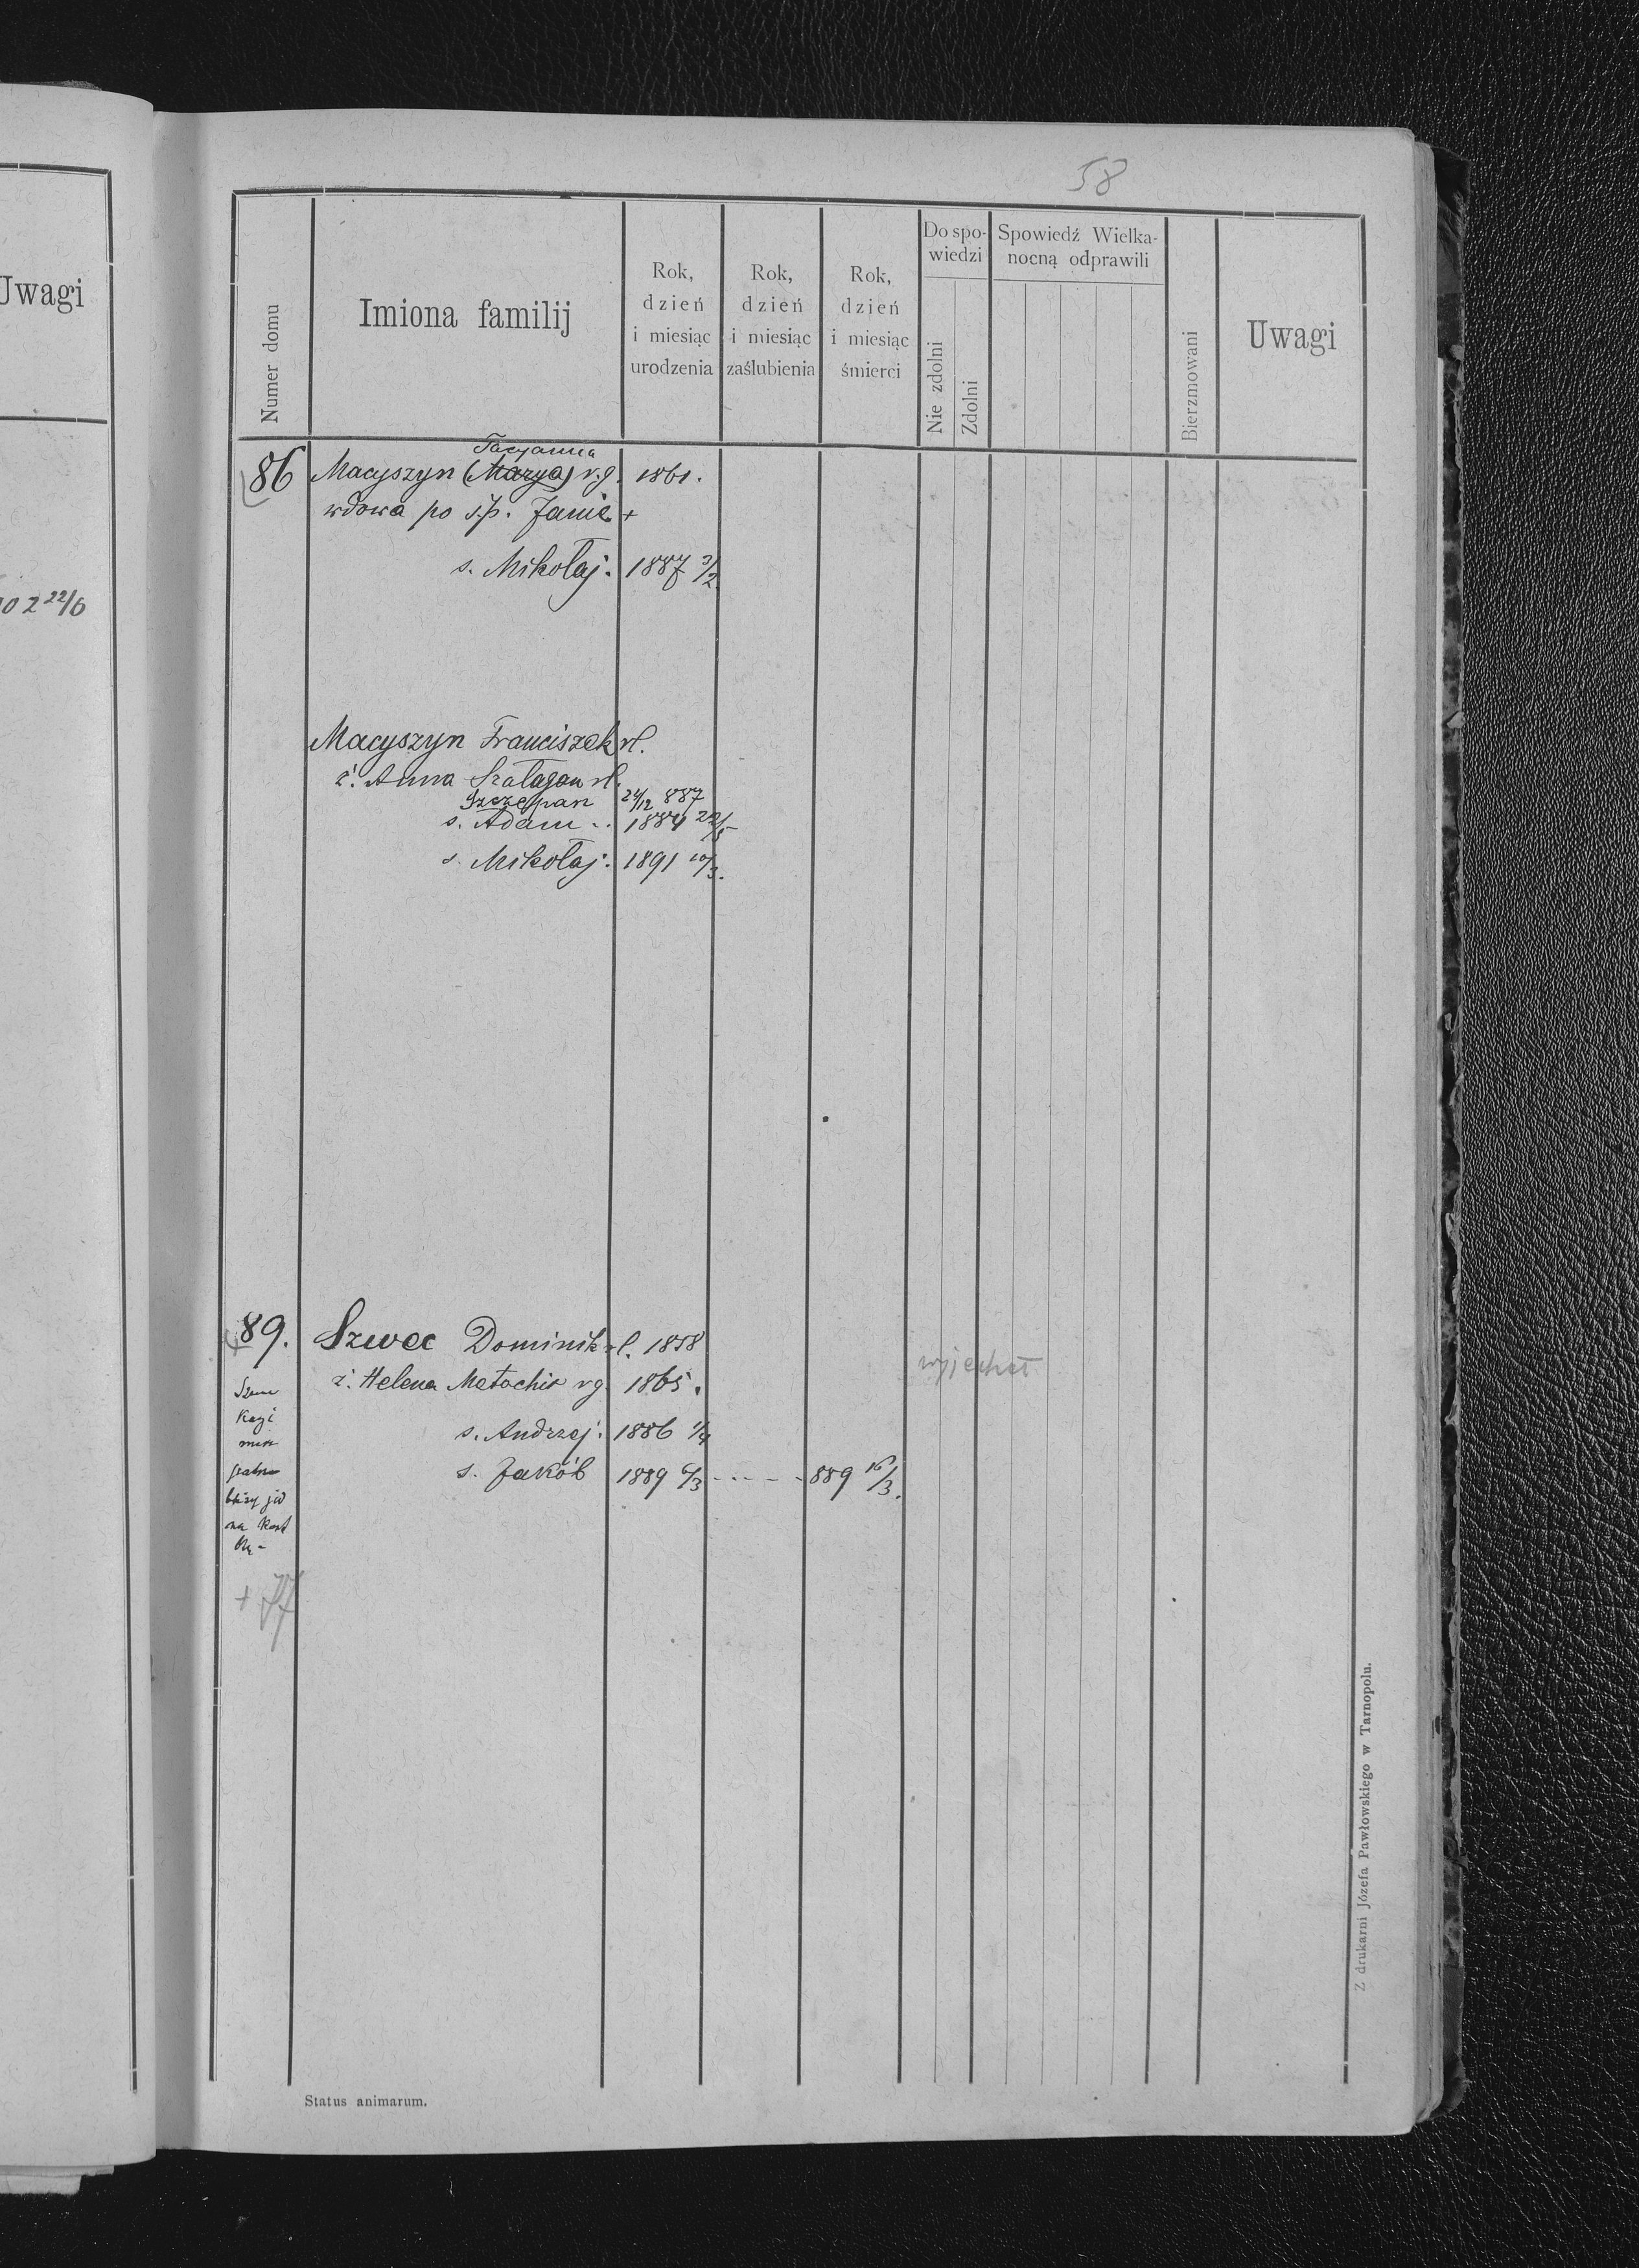 58
Uwagi
10 2 22/6
Numer domu
Imiona familij
Rok,
dzień
i miesiąc
urodzenia
Rok,
dzień
i miesiąc
zaślubienia
Rok,
dzień
i miesiąc
śmierci
Do spo-
wiedzi
Nie zdolni
Zdolni
Spowiedź Wielka-
nocną odprawili
Bierzmowani
Uwagi
Tacyanna
86 Macyszyn (Marya) r.g. 1861.
wdowa po ś.p. Janie +
s. Mikołaj. 1887 3/2
Macyszyn Franciszek rł.
ż. Anna Szałagan rł.
Szczepan 24/12 887
s. Adam .. 1884 22/5
s. Mikołaj. 1891 10/3.
89. Szwec Dominik rł. 1858
wyjechał
ż. Helena Matochir rg. 1865.
s. Andrzej. 1886 1/4
s. Jakób 1889 6/3 - - - - - 889 16/3.
Kazi
mirz
na
+ 77
Status animarum.
Z drukarni Józefa Pawłowskiego w Tarnopolu.